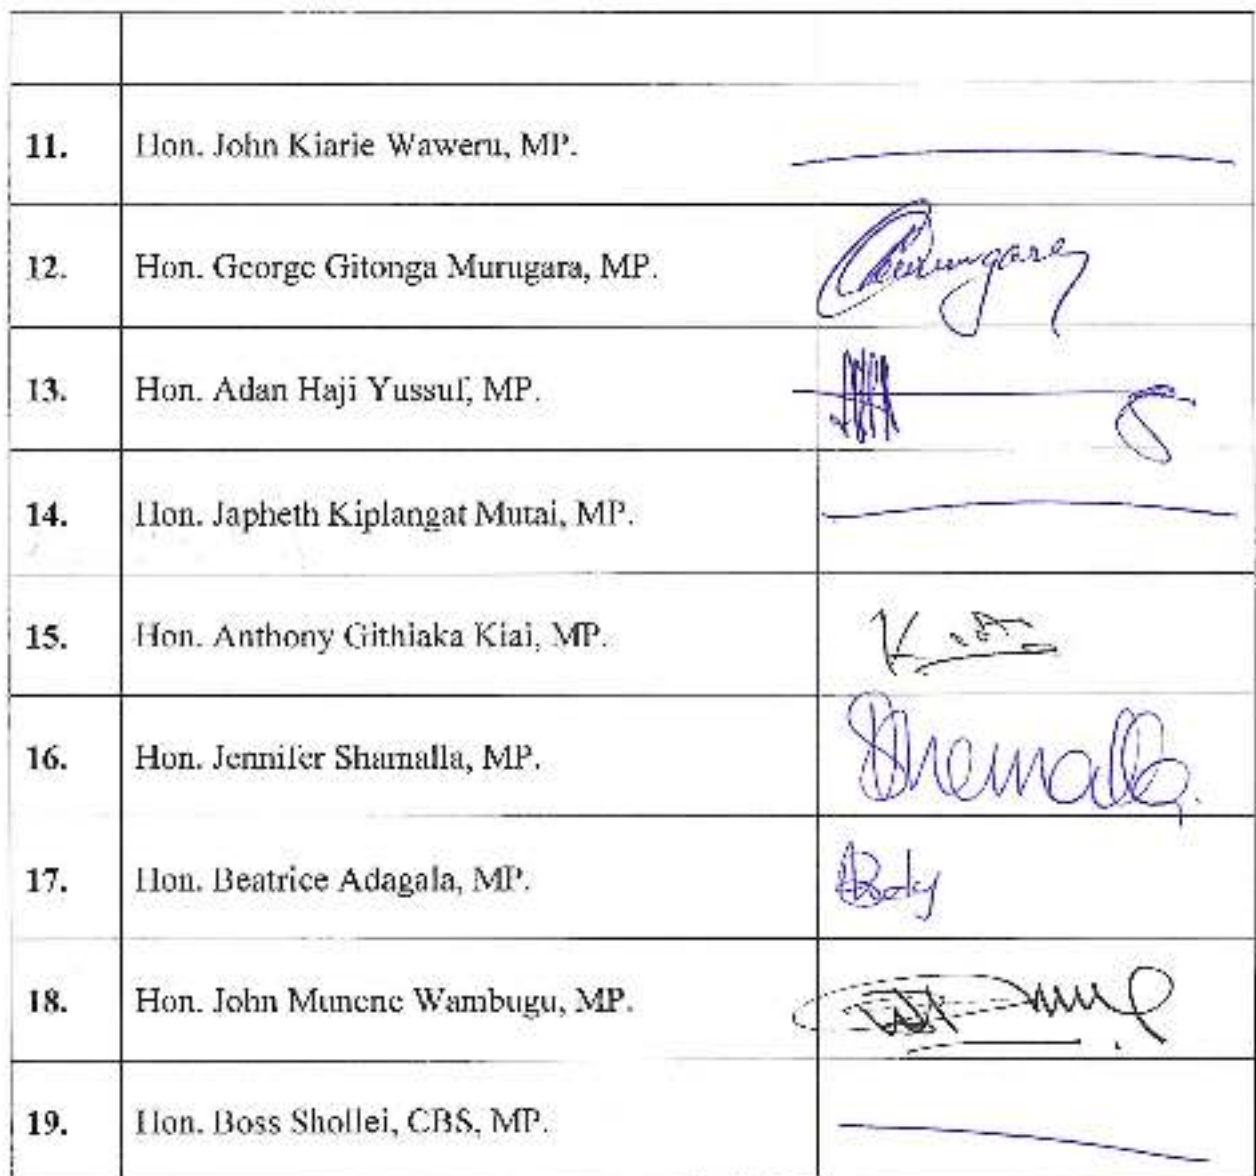 11. Hon. John Kiarie Waweru, MP.
12. Hon. George Gitonga Murugara, MP.
13. Hon. Adan Haji Yussuf, MP.
14. Hon. Japheth Kiplangat Mutai, MP.
15. Hon. Anthony Githiaka Kiai, MP.
16. Hon. Jennifer Shamalla, MP. Shamalla
17. Hon. Beatrice Adagala, MP.
18. Hon. John Munene Wambugu, MP.
19. Hon. Boss Shollei, CBS, MP.